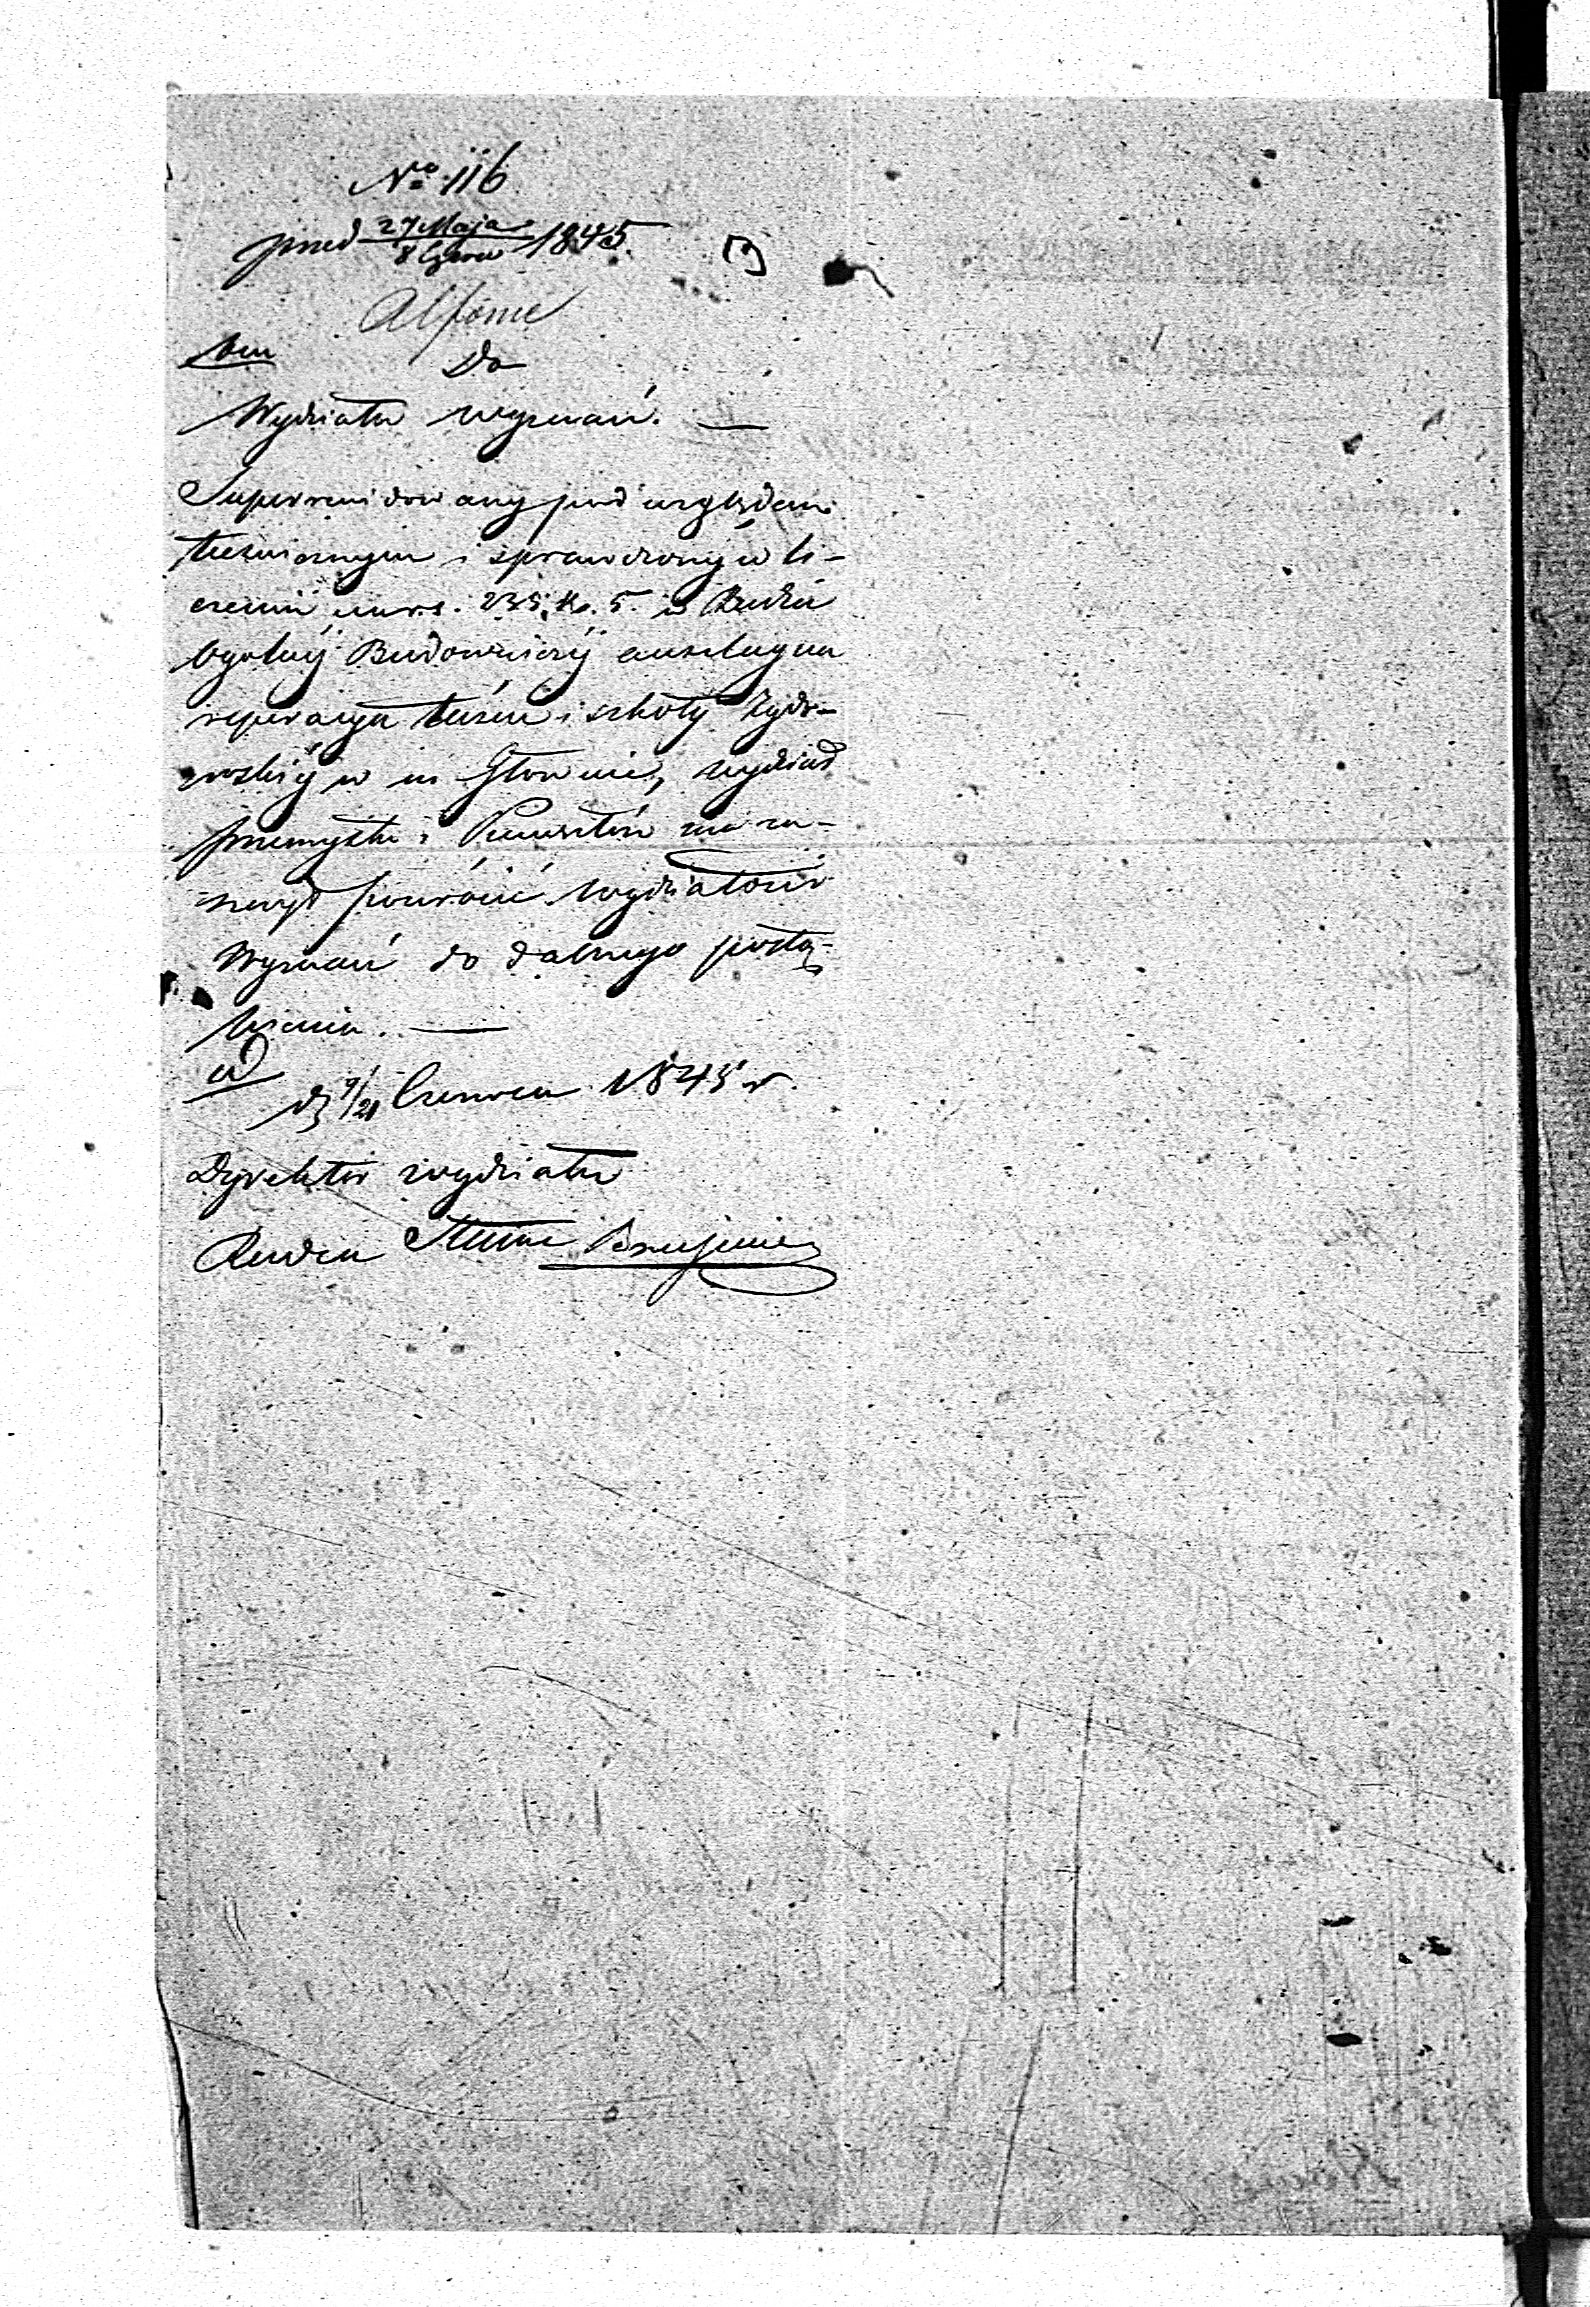 No 116
pred 27 Maja / 8 Czerw 1845.
Do
Wydziału Wyznań. —
Superrewidowany pod względem
technicznym i sprawdzony w li-
czeniu na rs. 235 k. 5. w Radzie
Ogólnej Budowniczej anszlag na
reperacyą łaźni i szkoły żydo-
wskiej w m Głownie, Wydział
przemysłu i Kunsztów ma za-
szczyt powrócić Wydziałowi
Wyznań do dalszego postą-
pienia. —
d 9/21 Czerwca 1845 r.
Dyrektor wydziału
Radca Stanu